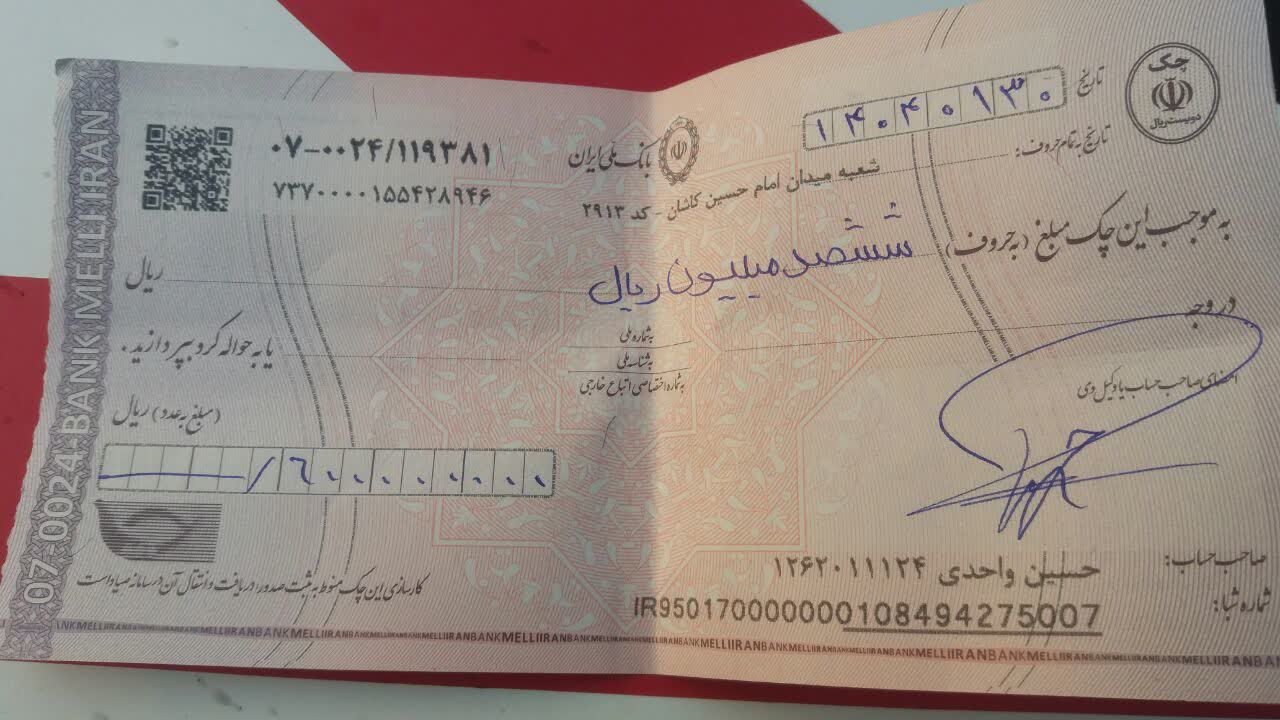 چک
دویست ریال
تاریخ ۱۴۰۴۰۱۳۰
تاریخ به تمام حروف:
بانک ملی ایران
شعبه میدان امام حسین کاشان - کد ۲۹۱۳
۰۷-۰۰۲۴/۱۱۹۳۸۱
۷۳۷۰۰۰۰۱۵۵۴۲۸۹۴۶
به موجب این چک مبلغ (به حروف) ششصد میلیون ریال ریال
در وجه
به شماره ملی
به شناسه ملی
به شماره اختصاصی اتباع خارجی
یا به حواله کرد بپردازید.
امضای صاحب حساب یا وکیل وی
(مبلغ به عدد) ریال
/۶۰۰,۰۰۰,۰۰۰
صاحب حساب: حسین واحدی ۱۲۶۲۰۱۱۱۲۴
شماره شبا: IR950170000000108494275007
کارسازی این چک منوط به ثبت صدور، دریافت و انتقال آن در سامانه صیاد است
07-0024-BANK MELLI IRAN
BANKMELLIIRANBANKMELLIIRANBANKMELLIIRANBANKMELLIIRAN